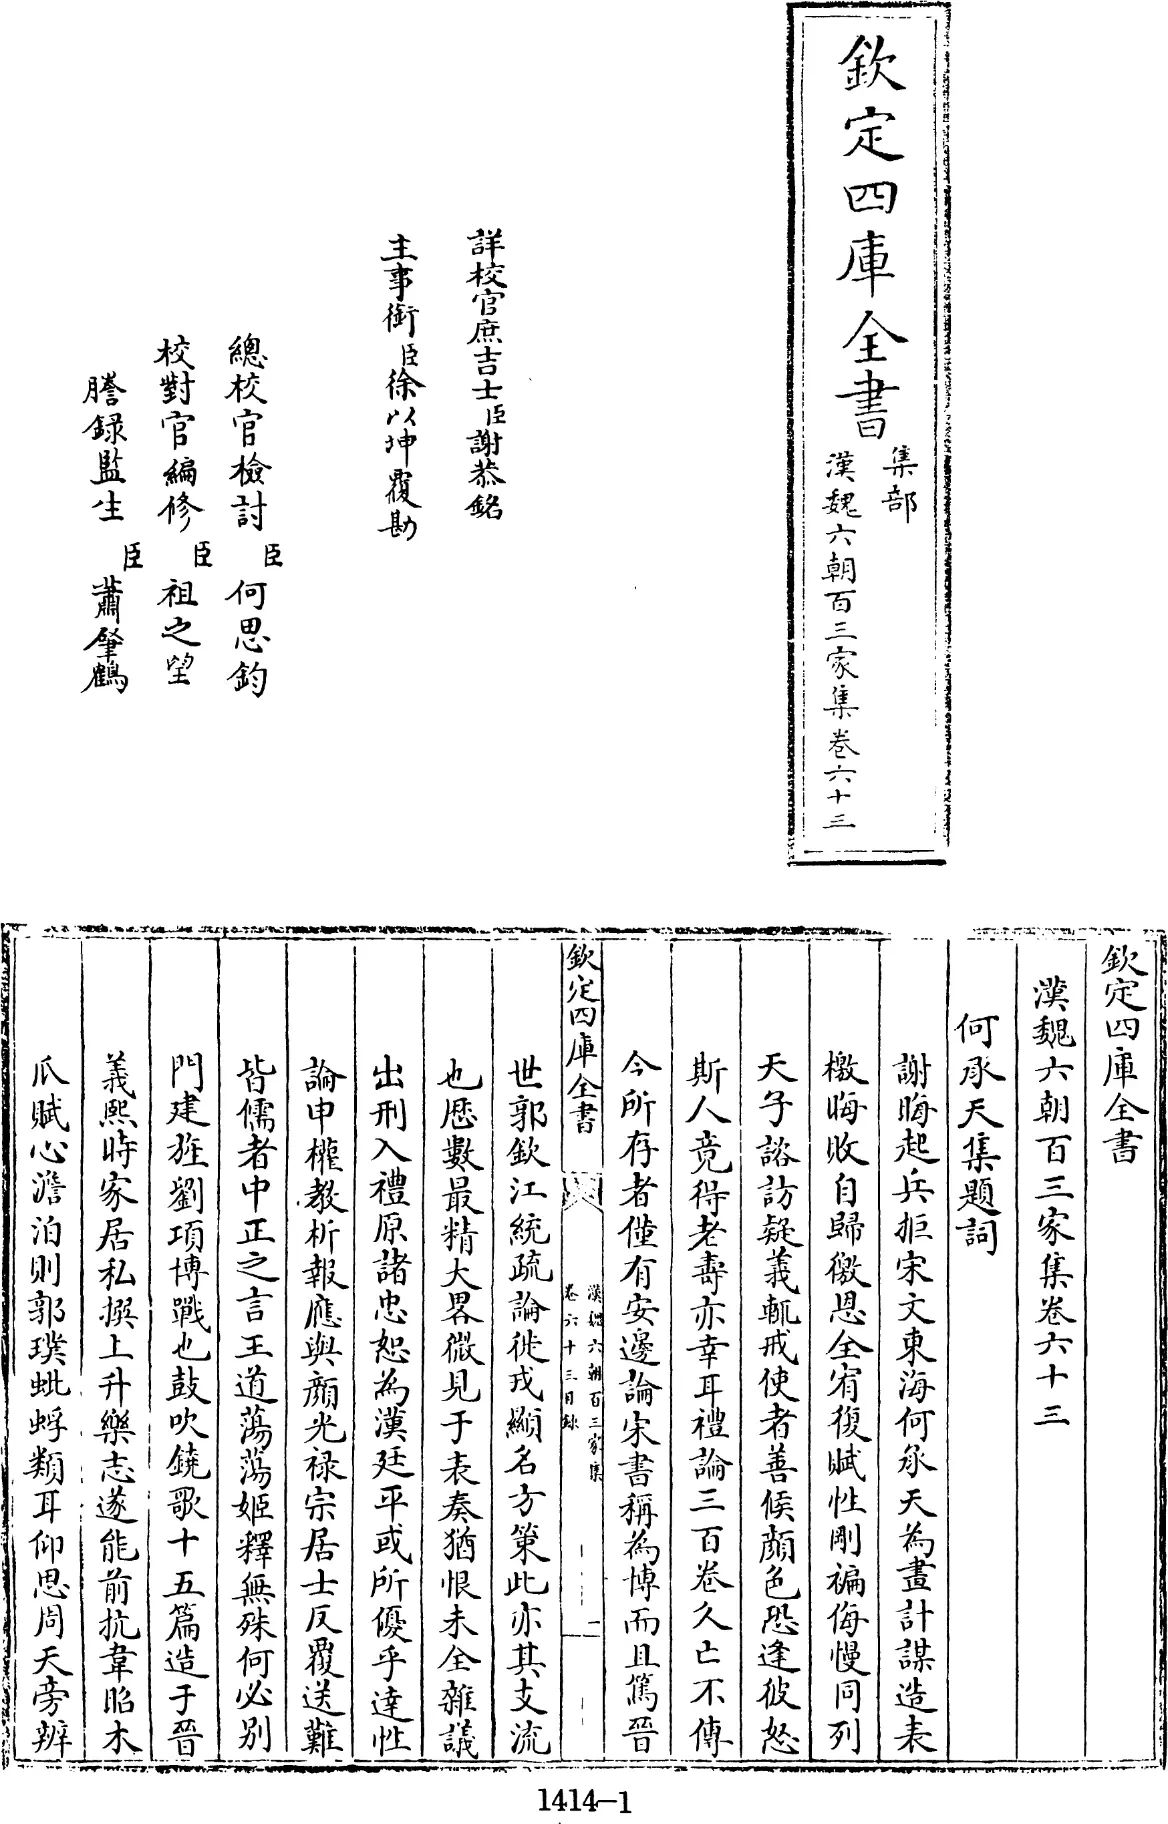 欽定四庫全書
集部
漢魏六朝百三家集卷六十三
詳校官庶吉士臣謝恭銘
主事銜臣徐以坤覆勘
總校官檢討臣何思鈞
校對官編修臣祖之望
謄錄監生臣蕭肇鶴
欽定四庫全書
漢魏六朝百三家集卷六十三
何承天集題詞
謝晦起兵拒宋文東海何承天為畫計謀造表
檄晦敗自歸徼恩全宥復賦性剛褊侮慢同列
天子諮訪疑義輒戒使者善候顔色恐逢彼怒
斯人竟得老壽亦幸耳禮論三百卷久亡不傳
今所存者僅有安邊論宋書稱為博而且篤晉
欽定四庫全書
漢魏六朝百三家集
卷六十三目録
一
世郭欽江統疏論徙戎顯名方策此亦其支流
也厯數最精大畧微見于表奏猶恨未全雜議
出刑入禮原諸忠恕為漢廷平或所優乎達性
論申權教析報應與顔光禄宗居士反覆送難
皆儒者中正之言王道蕩蕩姬釋無殊何必别
門建旌劉項博戰也鼓吹鐃歌十五篇造于晉
義熙時家居私撰上升樂志遂能前抗韋昭木
瓜賦心澹泊則郭璞蚍蜉類耳仰思周天旁辨
1414-1